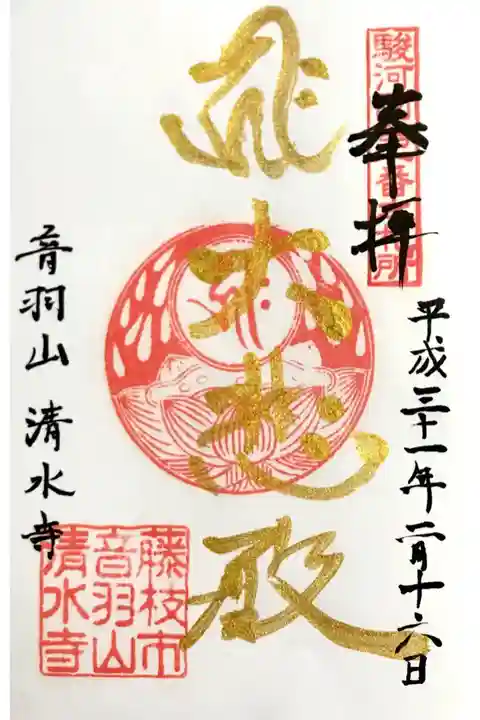 駿河
番札所
奉拝
平成三十一年二月十六日
大悲殿
音羽山 清水寺
藤枝市
音羽山
清水寺